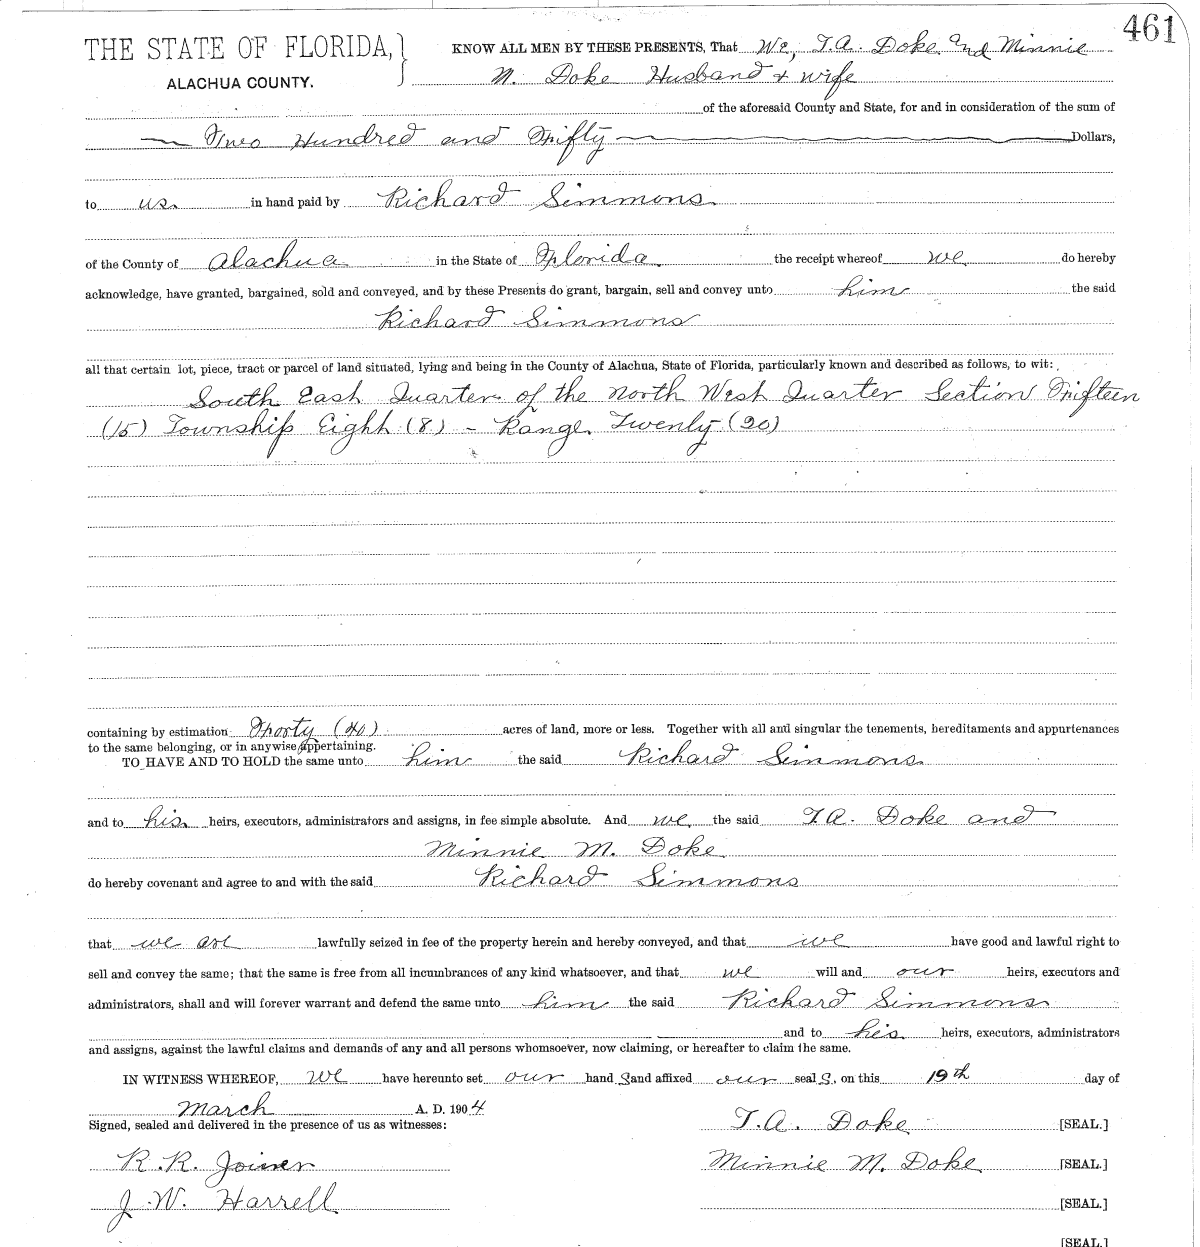 461
THE STATE OF FLORIDA,} KNOW ALL MEN BY THESE PRESENTS, That We, T.A. Doke and Minnie
ALACHUA COUNTY. M. Doke Husband & wife
of the aforesaid County and State, for and in consideration of the sum of
Two Hundred and Fifty Dollars,
to us in hand paid by Richard Simmons
of the County of Alachua in the State of Florida the receipt whereof we do hereby
acknowledge, have granted, bargained, sold and conveyed, and by these Presents do grant, bargain, sell and convey unto him the said
Richard Simmons
all that certain lot, piece, tract or parcel of land situated, lying and being in the County of Alachua, State of Florida, particularly known and described as follows, to wit:
South East Quarter of the North West Quarter Section Fifteen
(15) Township Eight (8) - Range Twenty (20)
containing by estimation Forty (40) acres of land, more or less. Together with all and singular the tenements, hereditaments and appurtenances
to the same belonging, or in anywise appertaining.
TO HAVE AND TO HOLD the same unto him the said Richard Simmons
and to his heirs, executors, administrators and assigns, in fee simple absolute. And we the said T.A. Doke and
Minnie M. Doke
do hereby covenant and agree to and with the said Richard Simmons
that we are lawfully seized in fee of the property herein and hereby conveyed, and that we have good and lawful right to
sell and convey the same; that the same is free from all incumbrances of any kind whatsoever, and that we will and our heirs, executors and
administrators, shall and will forever warrant and defend the same unto him the said Richard Simmons
and to his heirs, executors, administrators
and assigns, against the lawful claims and demands of any and all persons whomsoever, now claiming, or hereafter to claim the same.
IN WITNESS WHEREOF, we have hereunto set our hand s and affixed our seal s, on this 19th day of
March A. D. 1904
Signed, sealed and delivered in the presence of us as witnesses: T.A. Doke [SEAL.]
R.R. Joiner Minnie M. Doke [SEAL.]
J.W. Harrell [SEAL.]
[SEAL.]